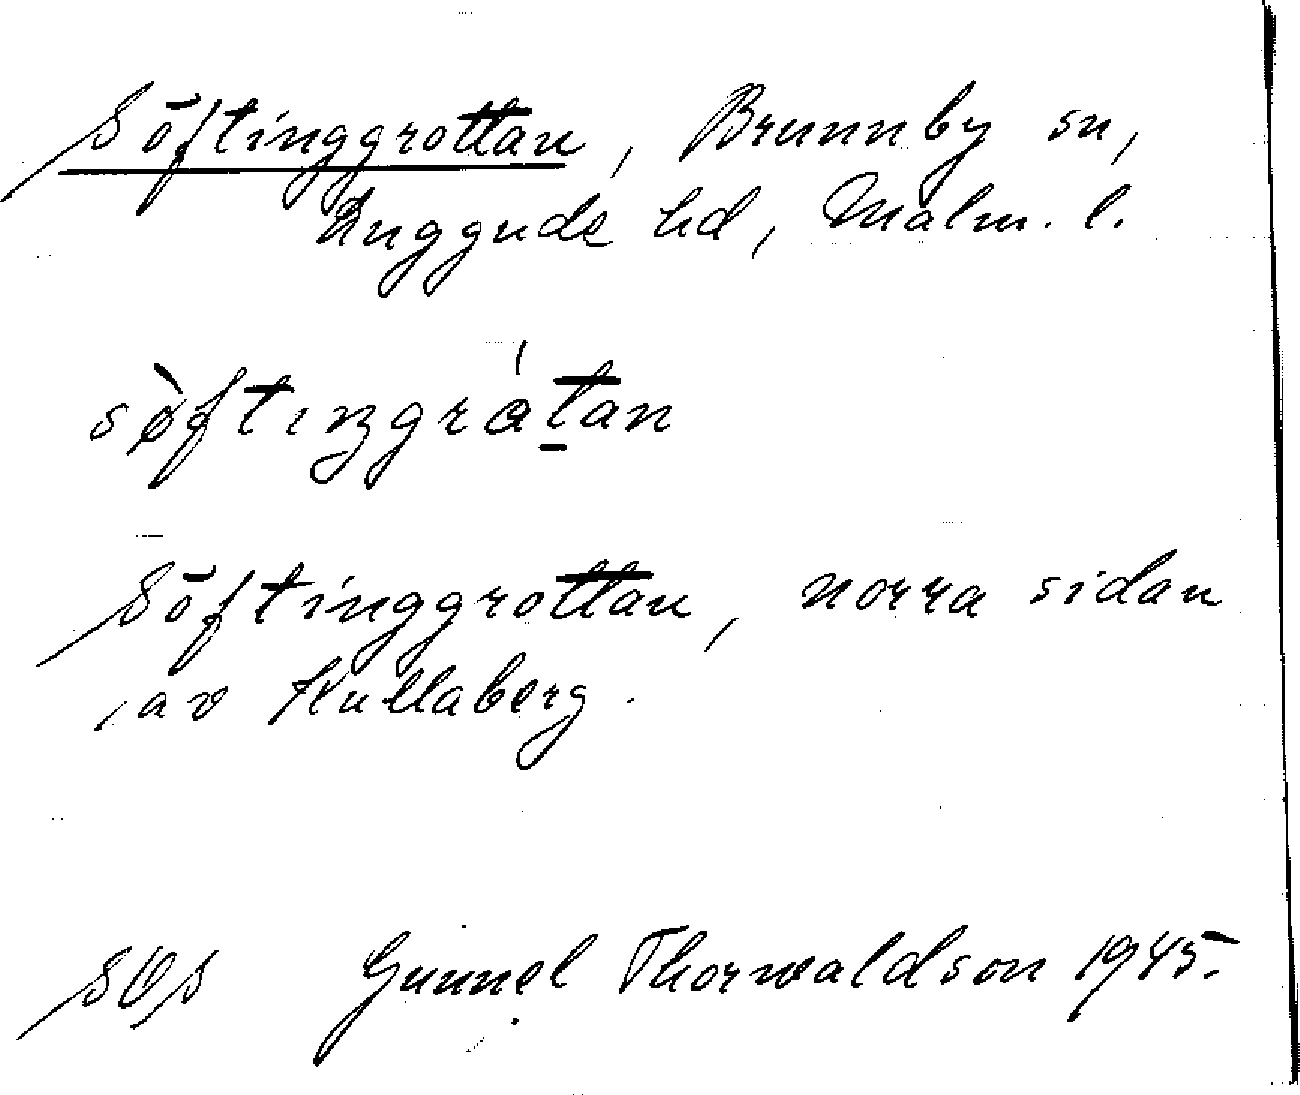 Söftinggrottan, Brunnby sn,
Luggude hd, Malm. l.
sø̀ftiŋgrátan
Söftinggrottan, norra sidan
av Kullaberg.
SOs Gunnel Thorwaldson 1945.